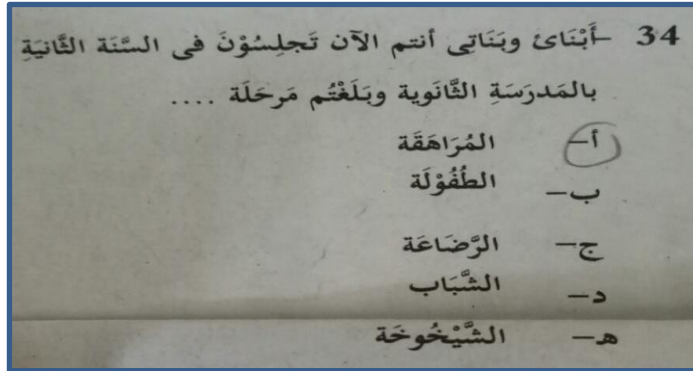 34 –أَبْنَائ وبَنَاتِى أنتم الآن تَجلِسُوْنَ فى السَّنَة الثَّانيَةِ
بالمَدرَسَةِ الثَّانَوية وبَلَغْتُم مَرحَلَة ....
أ– المُرَاهَقَة
ب– الطُفُوْلَة
ج– الرَّضَاعَة
د– الشَّبَاب
هـ– الشَّيْخُوخَة